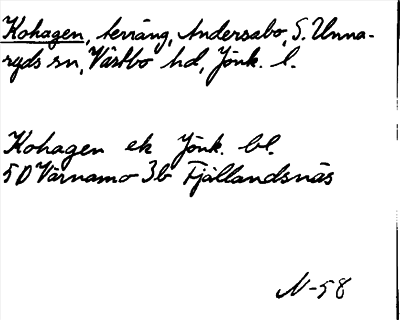 Kohagen, terräng, Andersabo, S. Unna-
ryds sn, Västbo hd, Jönk. l.
Kohagen ek Jönk. bl.
5D Värnamo 3b Fjällandsnäs
N-58